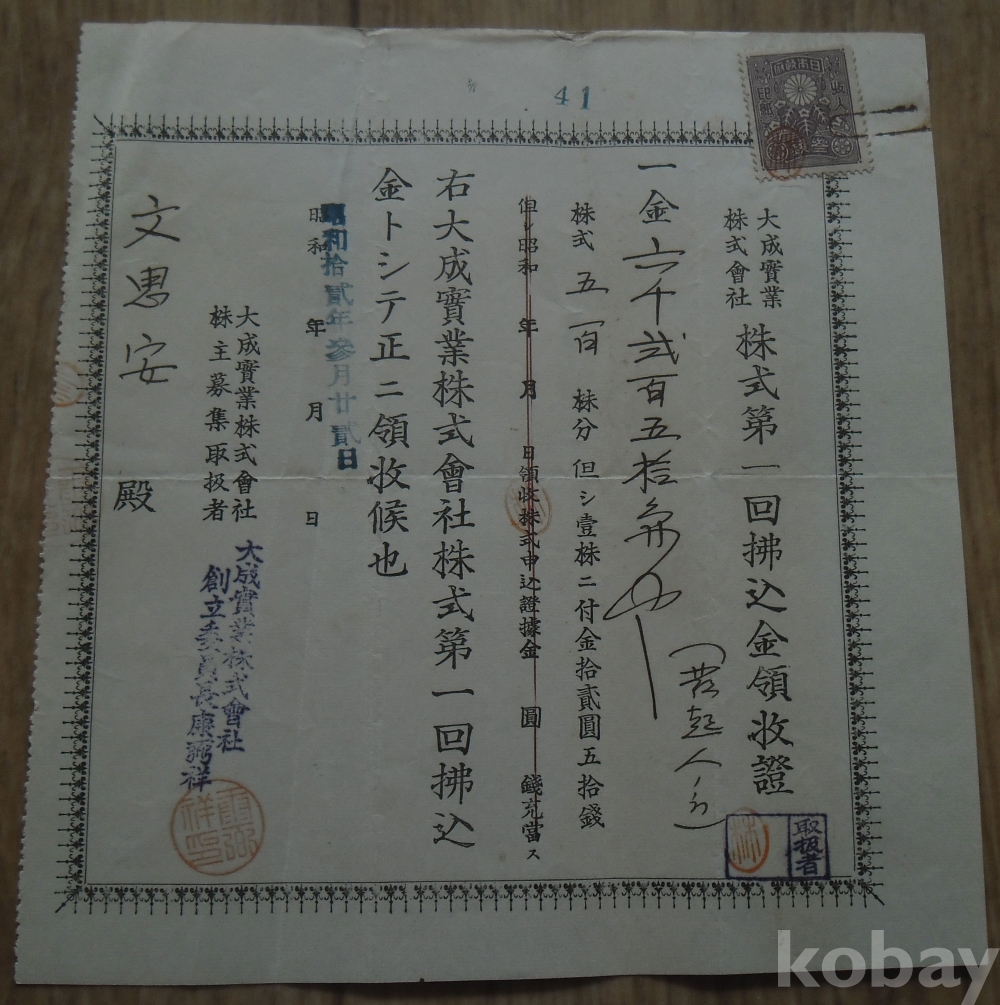 41
大成實業
株式會社
株式第一回拂込金領收證
一金六千貳百五拾
(發起人分)
株式五百株分但シ壹株ニ付金拾貳圓五拾錢
但シ昭和年月日領收株式申込證據金圓錢充當ス
右大成實業株式會社株式第一回拂込
金トシテ正ニ領收候也
昭和拾貳年參月廿貳日
昭和年月日
大成實業株式會社
株主募集取扱者
大成實業株式會社
創立委員長康弼祥
文惠安殿
取扱者
林
kobay